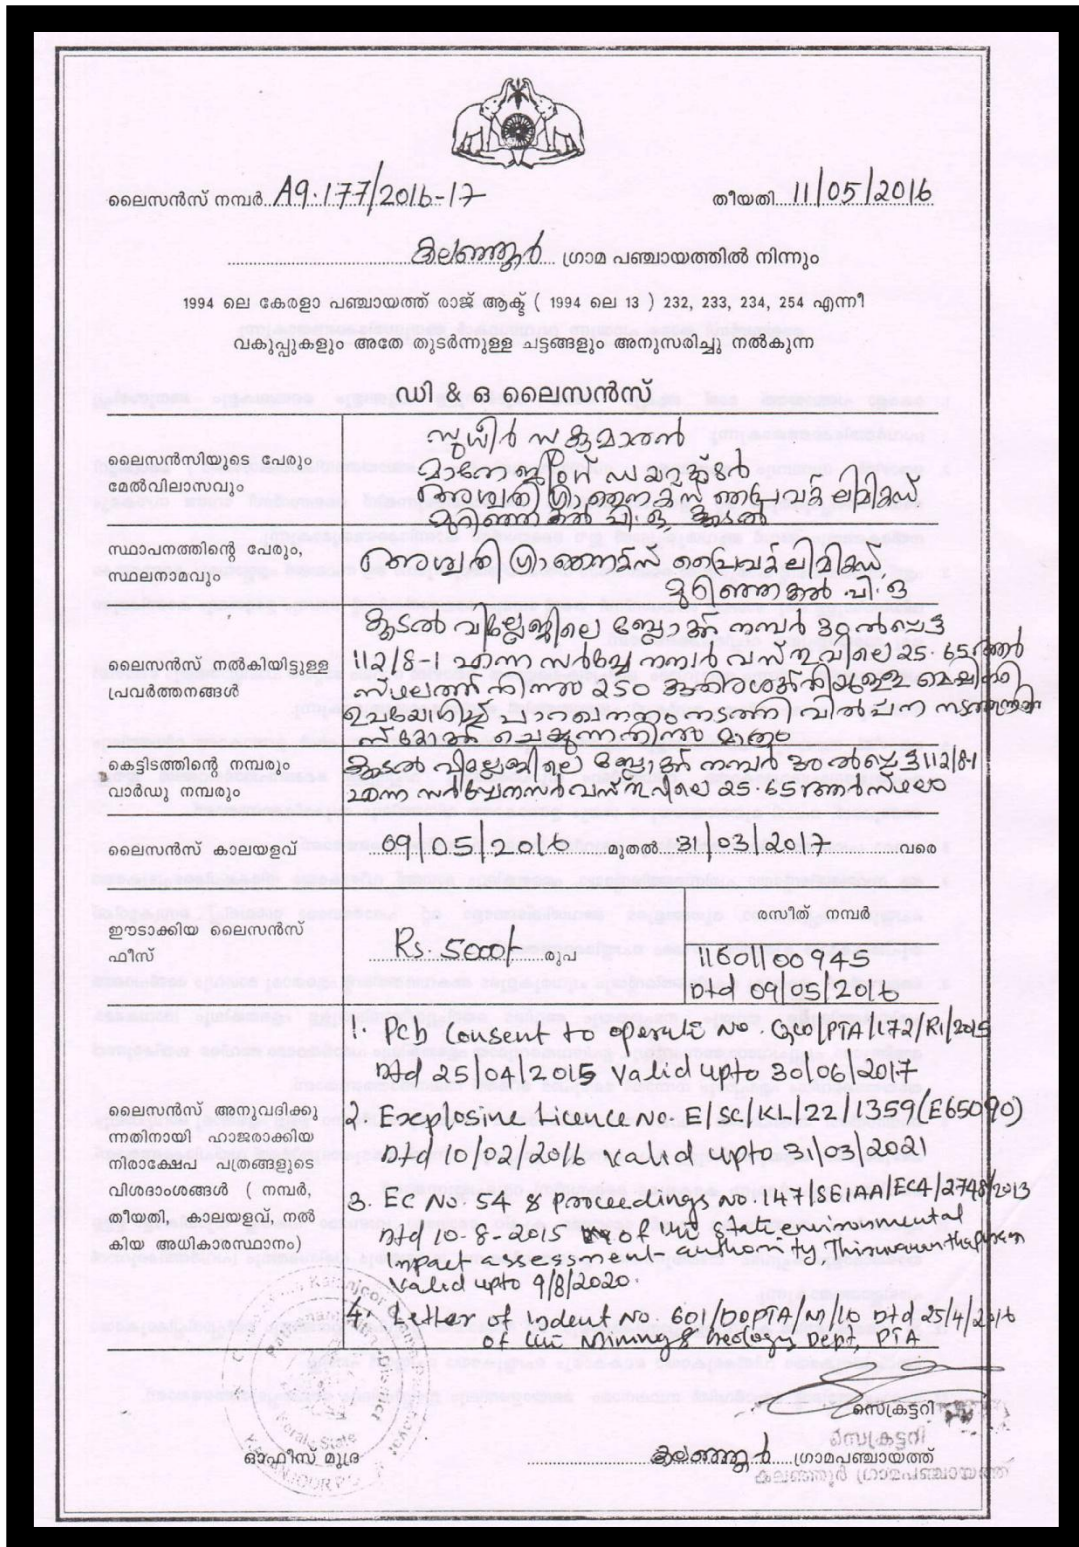 ലൈസൻസ് നമ്പർ A9-177/2016-17 തീയതി 11/05/2016
കലഞ്ഞൂർ ഗ്രാമ പഞ്ചായത്തിൽ നിന്നും
1994 ലെ കേരളാ പഞ്ചായത്ത് രാജ് ആക്ട് ( 1994 ലെ 13 ) 232, 233, 234, 254 എന്നീ
വകുപ്പുകളും അതേ തുടർന്നുള്ള ചട്ടങ്ങളും അനുസരിച്ചു നൽകുന്ന
ഡി & ഒ ലൈസൻസ്
ലൈസൻസിയുടെ പേരും
മേൽവിലാസവും
സുധീർ സുകുമാരൻ
മാനേജിംഗ് ഡയറക്ടർ
ലിമിറ്റഡ്
മുറിഞ്ഞകൽ പി.ഒ, കൂടൽ
സ്ഥാപനത്തിന്റെ പേരും,
സ്ഥലനാമവും
പ്രൈവറ്റ് ലിമിറ്റഡ്,
മുറിഞ്ഞകൽ പി.ഒ
ലൈസൻസ് നൽകിയിട്ടുള്ള
പ്രവർത്തനങ്ങൾ
കൂടൽ വില്ലേജിലെ ബ്ലോക്ക് നമ്പർ 30ൽപ്പെട്ട
112/8-1 എന്ന സർവ്വേ നമ്പർ വസ്തുവിലെ 25.65 ആർ
സ്ഥലത്ത് നിന്നും 250 കുതിരശക്തിയുള്ള
ഉപയോഗിച്ച് പാറഖനനം നടത്തി വിൽപ്പന
സ്റ്റോക്ക് ചെയ്യുന്നതിനും മാത്രം
കെട്ടിടത്തിന്റെ നമ്പരും
വാർഡു നമ്പരും
കൂടൽ വില്ലേജിലെ ബ്ലോക്ക് നമ്പർ 30 ൽപ്പെട്ട 112/8-1
എന്ന സർവ്വേ നമ്പർ വസ്തുവിലെ 25.65 ആർ സ്ഥലം
ലൈസൻസ് കാലയളവ് 09/05/2016 മുതൽ 31/03/2017 വരെ
ഈടാക്കിയ ലൈസൻസ്
ഫീസ്
Rs. 5000/- രൂപ
രസീത് നമ്പർ
11601/00945
Dtd 09/05/2016
ലൈസൻസ് അനുവദിക്കു
ന്നതിനായി ഹാജരാക്കിയ
നിരാക്ഷേപ പത്രങ്ങളുടെ
വിശദാംശങ്ങൾ ( നമ്പർ,
തീയതി, കാലയളവ്, നൽ
കിയ അധികാരസ്ഥാനം)
1. PCB Consent to operate No. /PTA/172/R1/2015
Dtd 25/04/2015 valid upto 30/06/2017
2. Explosive Licence No. E/SC/KL/22/1359(E65090)
Dtd 10/02/2016 valid upto 31/03/2021
3. EC No. 54 & proceedings No. 147/SEIAA/EC4/2748/2013
Dtd 10-8-2015 of the state environmental
impact assessment authority, Thiruvananthapuram
valid upto 9/8/2020.
4. Letter of Indent No. 601/DOPTA/M/16 Dtd 25/4/2016
of the Mining & Geology Dept, PTA
സെക്രട്ടറി
സെക്രട്ടറി
ഓഫീസ് മുദ്ര
കലഞ്ഞൂർ ഗ്രാമപഞ്ചായത്ത്
കലഞ്ഞൂർ ഗ്രാമപഞ്ചായത്ത്
Kerala State